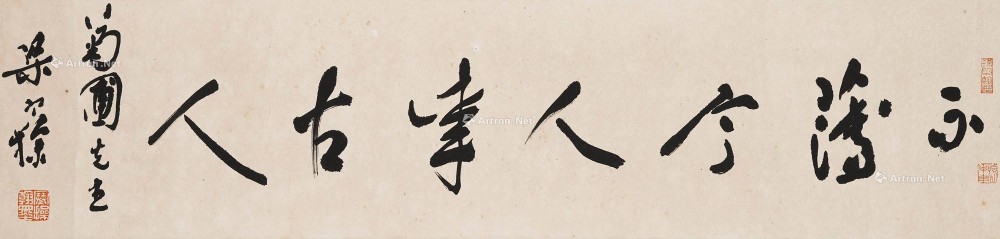 不薄今人愛古人
菊圃先生
梁寒操
Artron.Net
Artron.Net
Artron.Net